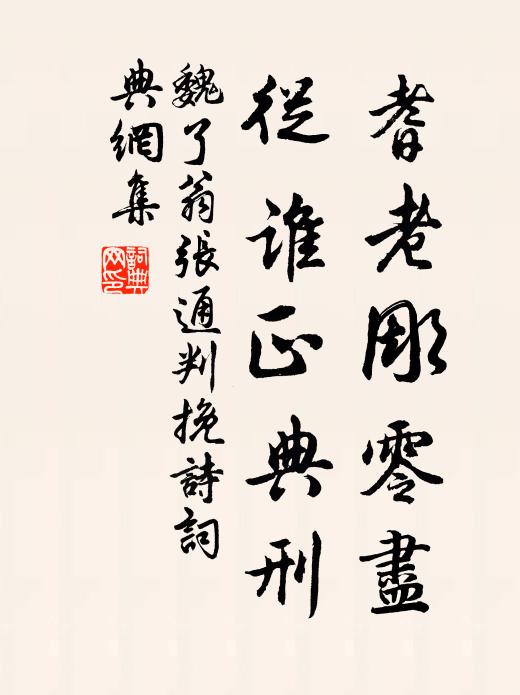 耆老彫零盡
從誰正典刑
魏了翁張通判挽詩詞
典網集
詞典
網印